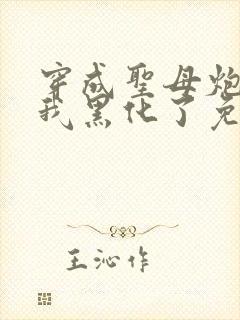 穿成聖母炮
我黑化了免
王沁作